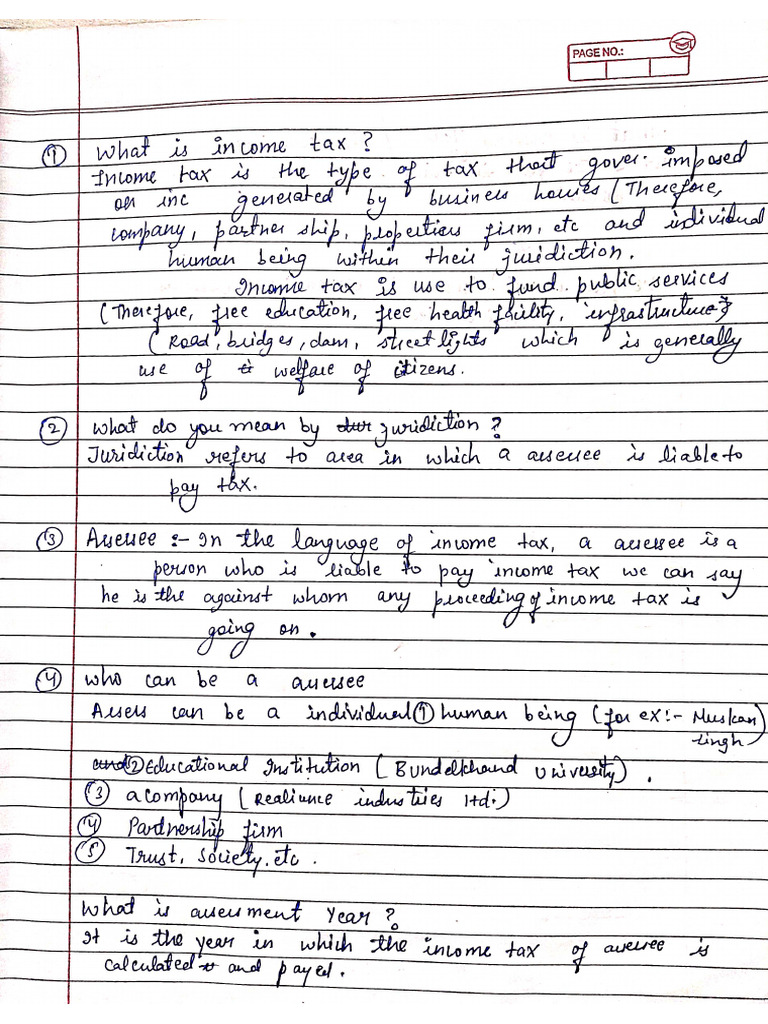 PAGE NO.:
① What is income tax ?
Income tax is the type of tax that gover. imposed
on inc generated by business houses (Therefore,
company, partner ship, properties firm, etc and individual
human being within their juridiction.
Income tax is use to fund public services
(Therefore, free education, free health facility, infrastructure)
(Road, bridges, dam, street lights which is generally
use of welfare of citizens.
② What do you mean by juridiction ?
Juridiction refers to area in which a assessee is liable to
pay tax.
③ Assessee :- In the language of income tax, a assessee is a
person who is liable to pay income tax we can say
he is the against whom any proceeding of income tax is
going on.
④ who can be a assessee
Assess can be a individual ① human being (for ex:- Muskan
singh)
and ② Educational Institution (Bundelkhand University).
③ a company (Realiance industries ltd.)
④ Partnership firm
⑤ Trust, Society, etc.
What is assessment year ?
It is the year in which the income tax of assessee is
calculated and payed.